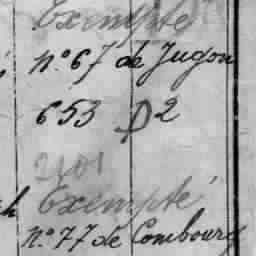 Exempté
n° 67 de Jugon
653 D 2
2101
Exempté
N° 77 de Combourg